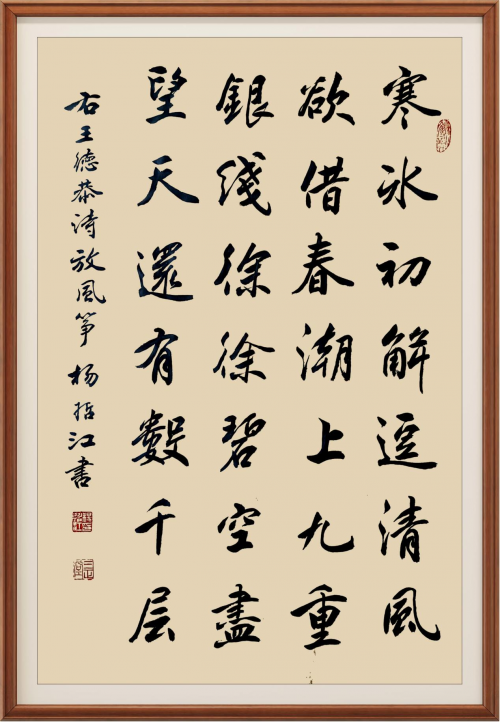 寒冰初解逗清風
欲借春潮上九重
銀线徐徐碧空盡
望天還有數千层
右王德恭诗放風筝 杨括江書